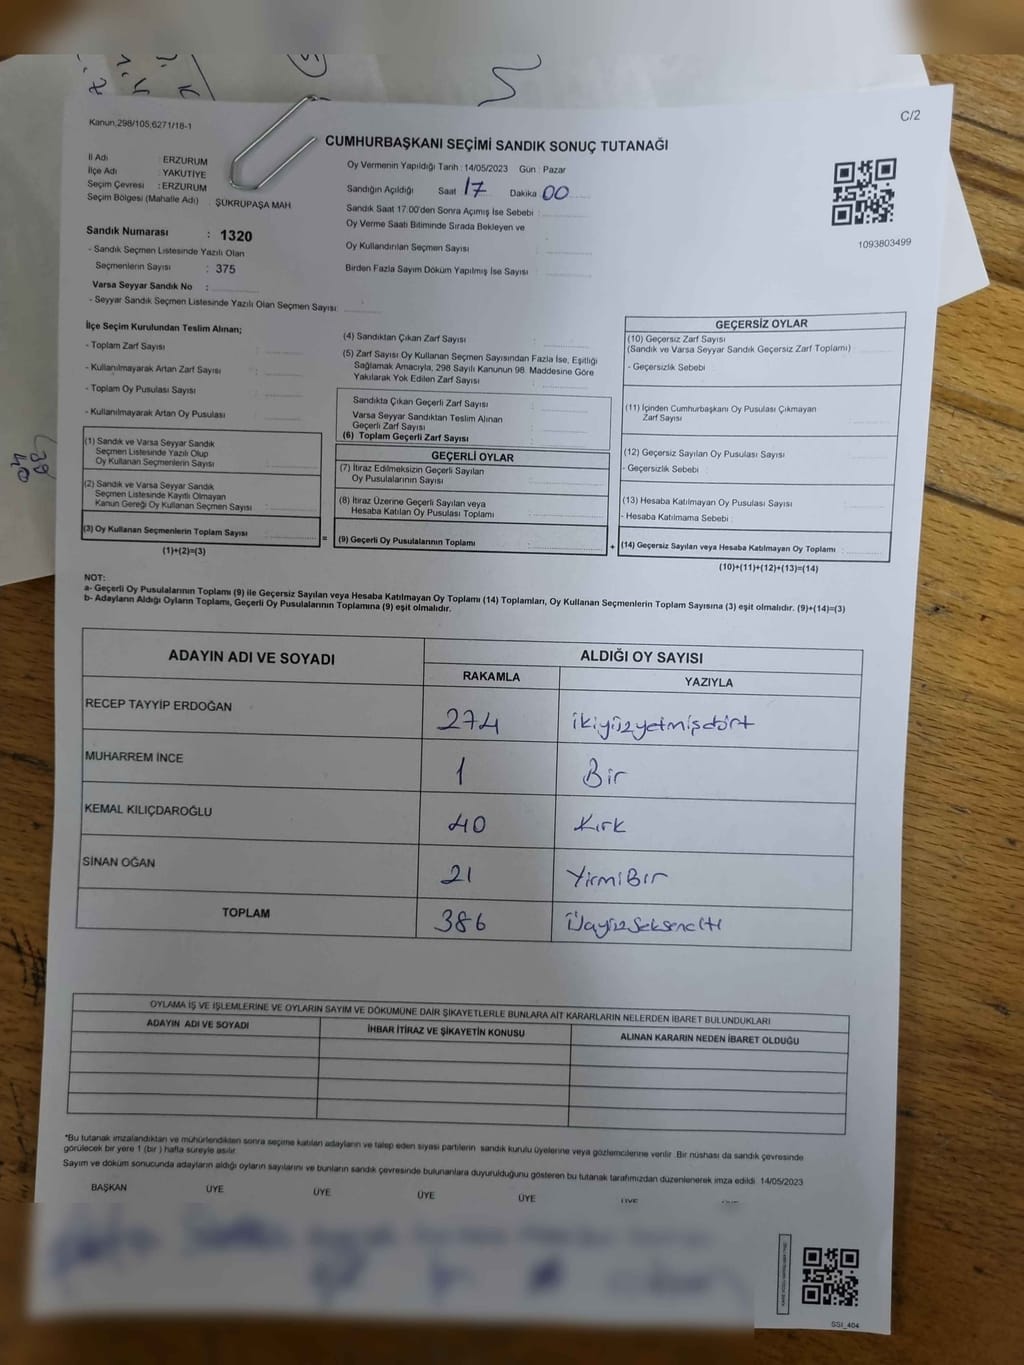 C/2
Kanun,298/105,6271/18-1
CUMHURBAŞKANI SEÇİMİ SANDIK SONUÇ TUTANAĞI
İl Adı : ERZURUM
İlçe Adı : YAKUTİYE
Seçim Çevresi : ERZURUM
Seçim Bölgesi (Mahalle Adı) : ŞÜKRÜPAŞA MAH
Sandık Numarası : 1320
- Sandık Seçmen Listesinde Yazılı Olan
Seçmenlerin Sayısı : 375
Varsa Seyyar Sandık No :
- Seyyar Sandık Seçmen Listesinde Yazılı Olan Seçmen Sayısı:
Oy Vermenin Yapıldığı Tarih : 14/05/2023 Gün : Pazar
Sandığın Açıldığı Saat 17 Dakika 00
Sandık Saat 17.00'den Sonra Açımış İse Sebebi :
Oy Verme Saati Bitiminde Sırada Bekleyen ve
Oy Kullandırılan Seçmen Sayısı :
Birden Fazla Sayım Döküm Yapılmış İse Sayısı :
1093803499
İlçe Seçim Kurulundan Teslim Alınan;
- Toplam Zarf Sayısı :
- Kullanılmayarak Artan Zarf Sayısı :
- Toplam Oy Pusulası Sayısı :
- Kullanılmayarak Artan Oy Pusulası :
(1) Sandık ve Varsa Seyyar Sandık
Seçmen Listesinde Yazılı Olup
Oy Kullanan Seçmenlerin Sayısı :
(2) Sandık ve Varsa Seyyar Sandık
Seçmen Listesinde Kayıtlı Olmayan
Kanun Gereği Oy Kullanan Seçmen Sayısı :
(3) Oy Kullanan Seçmenlerin Toplam Sayısı :
(1)+(2)=(3)
(4) Sandıktan Çıkan Zarf Sayısı :
(5) Zarf Sayısı Oy Kullanan Seçmen Sayısından Fazla İse, Eşitliği
Sağlamak Amacıyla, 298 Sayılı Kanunun 98. Maddesine Göre
Yakılarak Yok Edilen Zarf Sayısı :
Sandıkta Çıkan Geçerli Zarf Sayısı :
Varsa Seyyar Sandıktan Teslim Alınan
Geçerli Zarf Sayısı :
(6) Toplam Geçerli Zarf Sayısı :
GEÇERLİ OYLAR
(7) İtiraz Edilmeksizin Geçerli Sayılan
Oy Pusulalarının Sayısı :
(8) İtiraz Üzerine Geçerli Sayılan veya
Hesaba Katılan Oy Pusulası Toplamı :
=
(9) Geçerli Oy Pusulalarının Toplamı :
GEÇERSİZ OYLAR
(10) Geçersiz Zarf Sayısı
(Sandık ve Varsa Seyyar Sandık Geçersiz Zarf Toplamı) :
- Geçersizlik Sebebi :
(11) İçinden Cumhurbaşkanı Oy Pusulası Çıkmayan
Zarf Sayısı :
(12) Geçersiz Sayılan Oy Pusulası Sayısı :
- Geçersizlik Sebebi :
(13) Hesaba Katılmayan Oy Pusulası Sayısı :
- Hesaba Katılmama Sebebi :
+
(14) Geçersiz Sayılan veya Hesaba Katılmayan Oy Toplamı :
(10)+(11)+(12)+(13)=(14)
NOT:
a- Geçerli Oy Pusulalarının Toplamı (9) ile Geçersiz Sayılan veya Hesaba Katılmayan Oy Toplamı (14) Toplamları, Oy Kullanan Seçmenlerin Toplam Sayısına (3) eşit olmalıdır. (9)+(14)=(3)
b- Adayların Aldığı Oyların Toplamı, Geçerli Oy Pusulalarının Toplamına (9) eşit olmalıdır.
ADAYIN ADI VE SOYADI
ALDIĞI OY SAYISI
RAKAMLA YAZIYLA
RECEP TAYYİP ERDOĞAN 274 ikiyüzyetmişdört
MUHARREM İNCE 1 Bir
KEMAL KILIÇDAROĞLU 40 Kırk
SİNAN OĞAN 21 YirmiBir
TOPLAM 386
OYLAMA İŞ VE İŞLEMLERİNE VE OYLARIN SAYIM VE DÖKÜMÜNE DAİR ŞİKAYETLERLE BUNLARA AİT KARARLARIN NELERDEN İBARET BULUNDUKLARI
ADAYIN ADI VE SOYADI İHBAR İTİRAZ VE ŞİKAYETİN KONUSU ALINAN KARARIN NEDEN İBARET OLDUĞU
*Bu tutanak imzalandıktan ve mühürlendikten sonra seçime katılan adayların ve talep eden siyasi partilerin sandık kurulu üyelerine veya gözlemcilerine verilir. Bir nüshası da sandık çevresinde
görülecek bir yere 1 (bir) hafta süreyle asılır.
Sayım ve döküm sonucunda adayların aldığı oyların sayılarını ve bunların sandık çevresinde bulunanlara duyurulduğunu gösteren bu tutanak tarafımızdan düzenlenerek imza edildi. 14/05/2023
BAŞKAN ÜYE ÜYE ÜYE ÜYE ÜYE
SSI_404